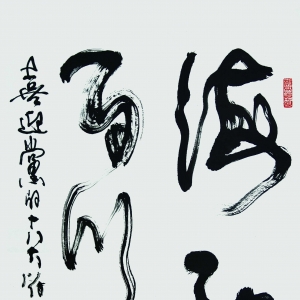 海
百川
喜迎黨的十八大